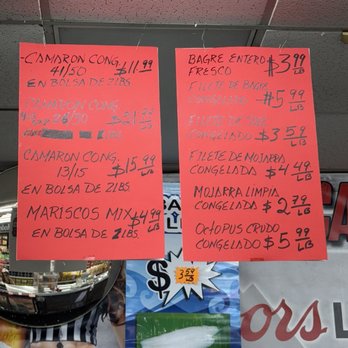 CAMARON CONG.
41/50 $11.99
EN BOLSA DE 2LBS.
CAMARON CONG
$21.99
CAMARON CONG.
13/15 $15.99 LB
EN BOLSA DE 2LBS
MARISCOS MIX $4.99 LB
EN BOLSA DE 2LBS
BAGRE ENTERO
FRESCO $3.99 LB
FILETE DE BAGRE
CONGELADO $5.99 LB
FILETE DE
CONGELADO $3.59 LB
FILETE DE MOJARRA
CONGELADA $4.49 LB
MOJARRA LIMPIA
CONGELADA $2.79 LB
OCTOPUS CRUDO
CONGELADO $5.99 LB
$
3.59
ors L